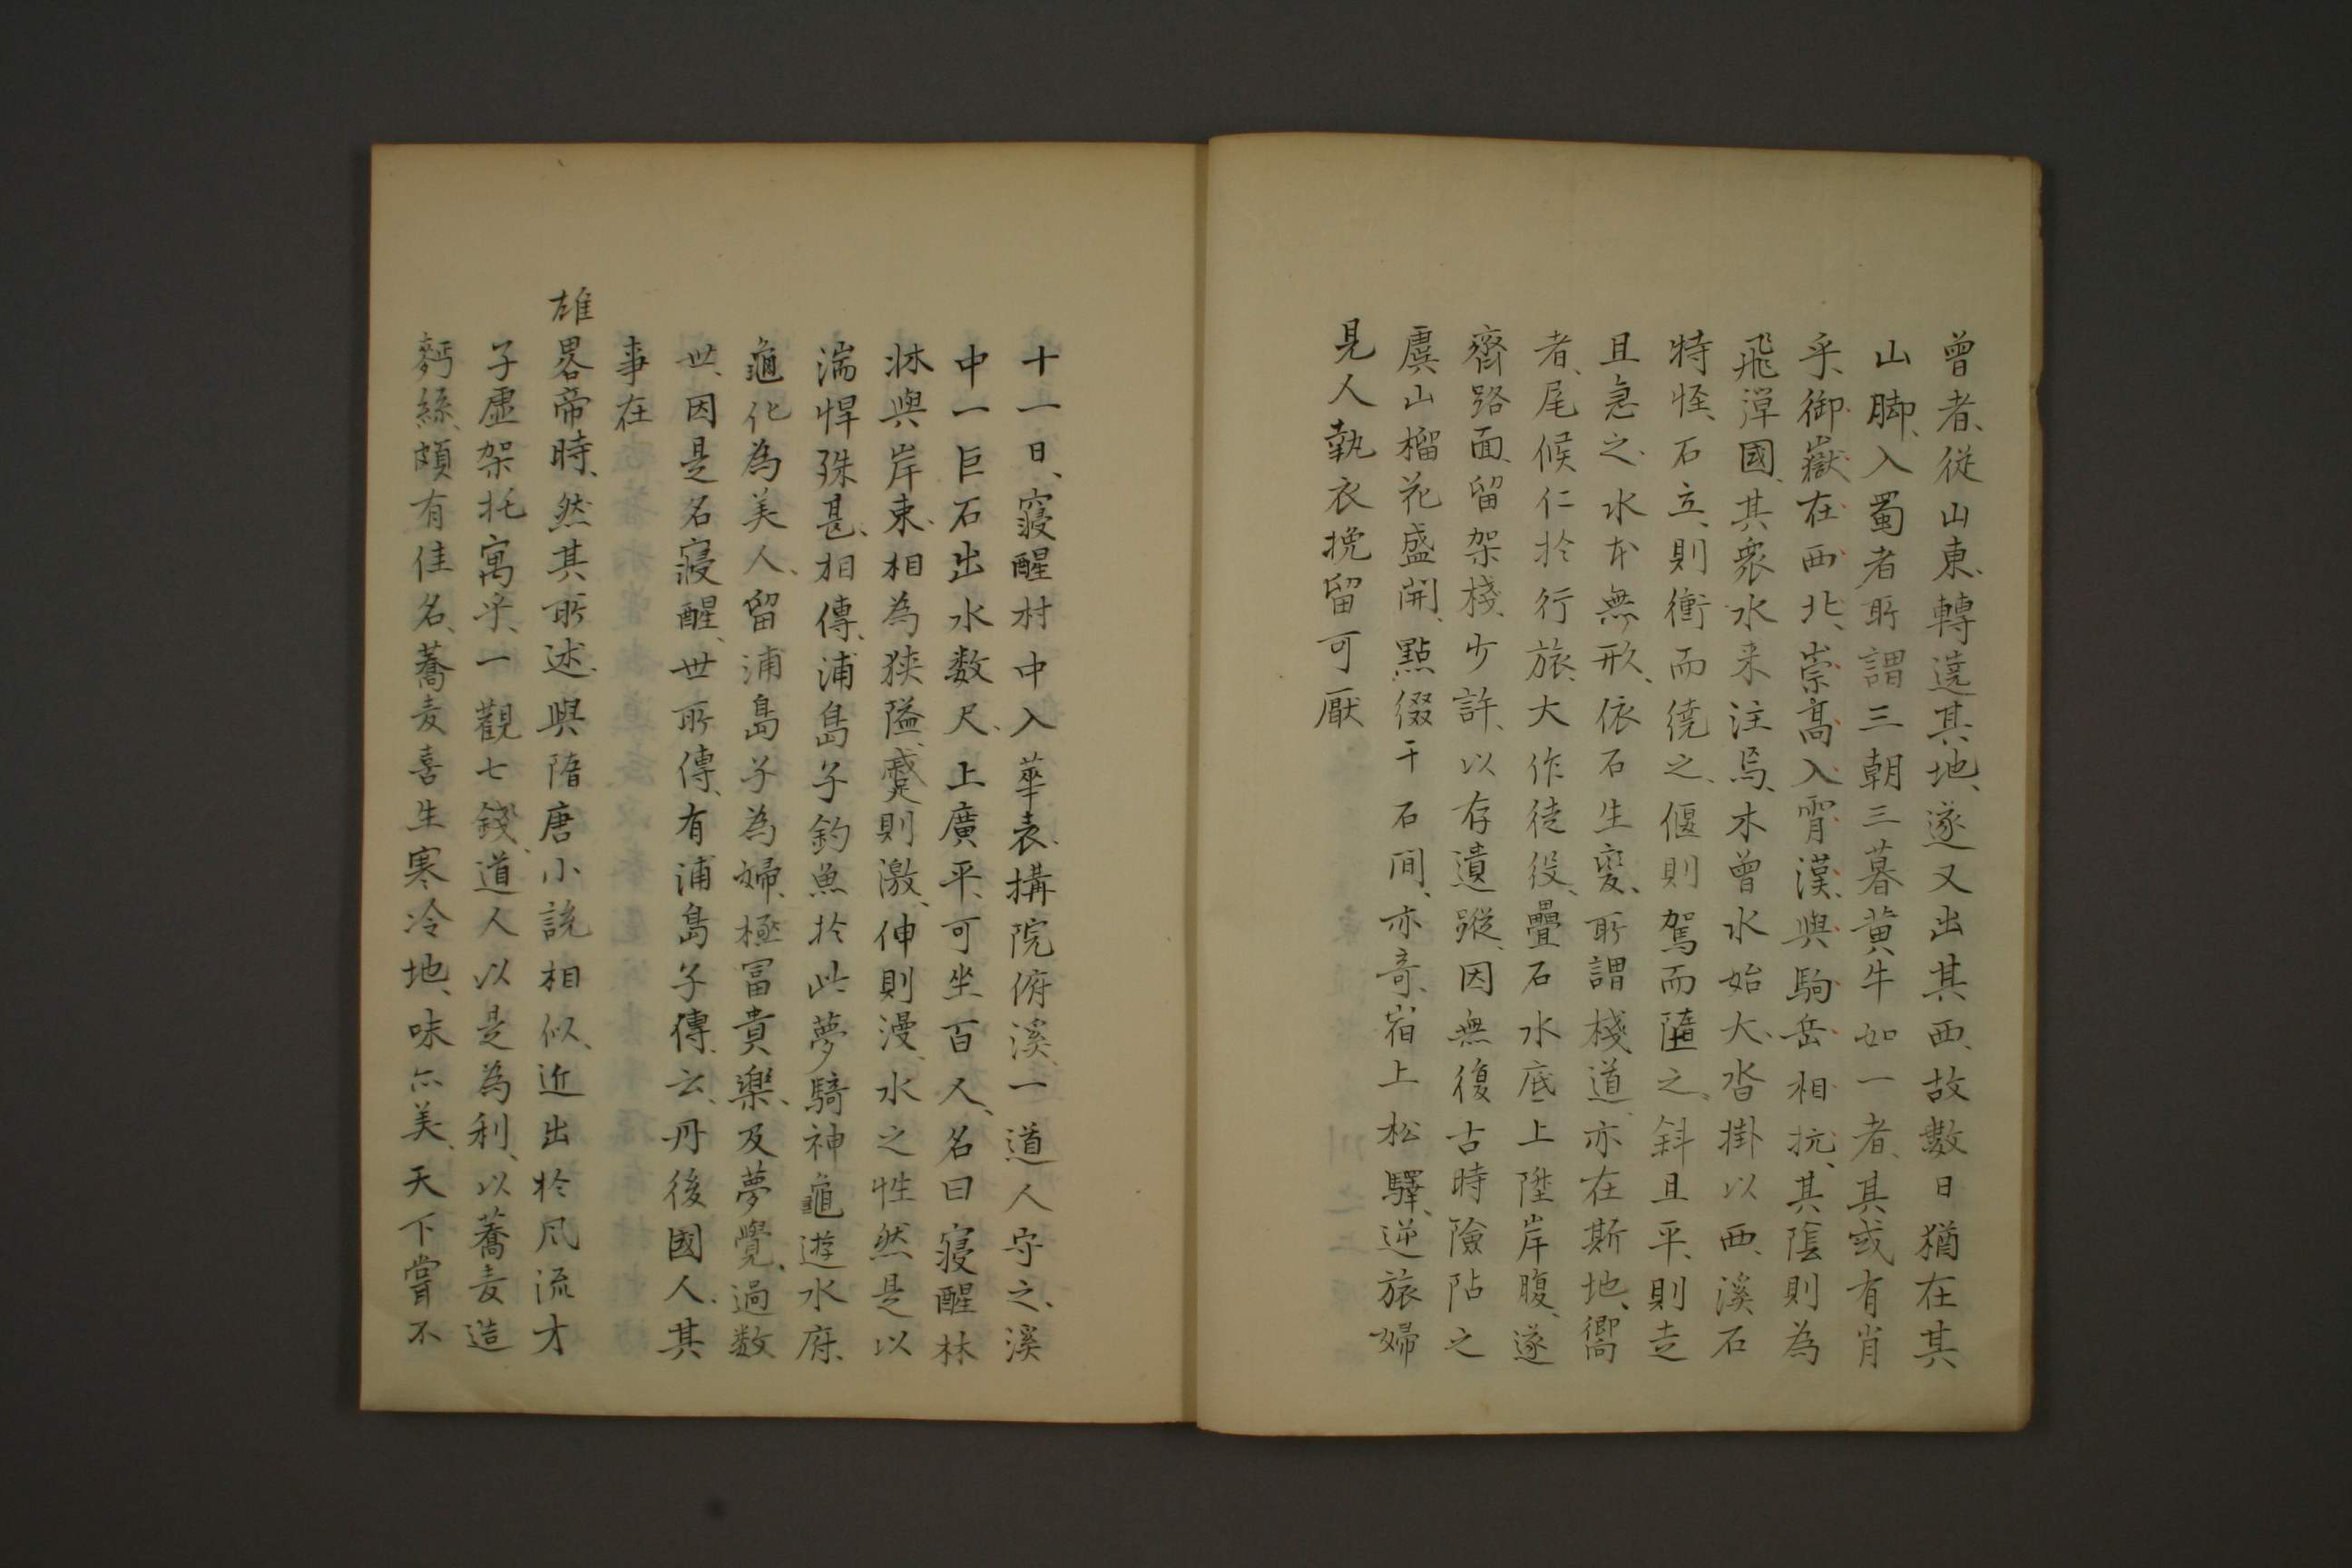 曾者、従山東、轉遶其地、遂又出其西、故數日猶在其
山脚、入蜀者所謂三朝三暮黄牛如一者、其或有肖
乎、御嶽在西北、崇髙入霄漢、與駒岳相抗、其陰則為
飛彈國、其衆水来注焉、木曾水始大、沓掛以西、溪石
特怪、石立、則衝而繞之、偃則駕而隨之、斜且平、則走
且急之、水本無形、依石生變、所謂棧道、亦在斯地、嚮
者、尾候仁於行旅、大作徒役、疊石水底上陞岸腹、遂
齊路面、留架棧、少許、以存遺蹤、因無復古時險阽之
虞、山榴花盛開、點綴于石間、亦竒、宿上松驛、逆旅婦
見人執衣挽留可厭
十一日、寢醒村中入華表、搆院俯溪、一道人守之、溪
中一巨石出水数尺、上廣平、可坐百人、名曰寢醒林
牀與岸束、相為狭隘、蹙則激、伸則漫、水之性然是以
湍悍殊甚、相傳、浦島子釣魚於此、夢騎神龜遊水府、
龜化為美人、留浦島子為婦、極冨貴樂、及夢覺、過数
世、因是名寢醒、世所傳、有浦島子傳、云、丹後國人、其
事在
雄畧帝時、然其所述、與隋唐小説相似、近出於凨流才
子虛架托寓乎、一觀七錢、道人以是為利、以蕎麦造
麪絲、頗有佳名、蕎麦喜生寒冷地、味亦美、天下嘗不